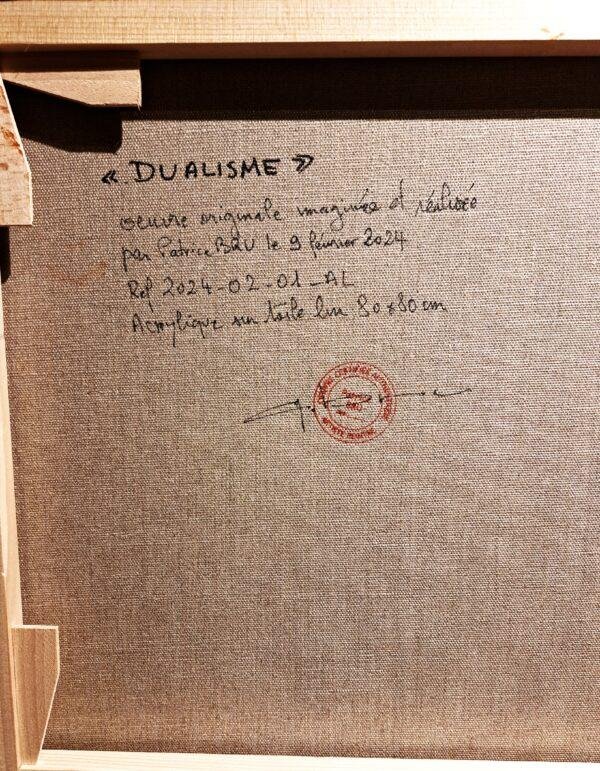 « DUALISME »
oeuvre originale imaginée et réalisée
par Patrice BRU le 9 février 2024
Ref 2024-02-01-AL
Acrylique sur toile lin 80x80 cm
ARTISTE PEINTRE